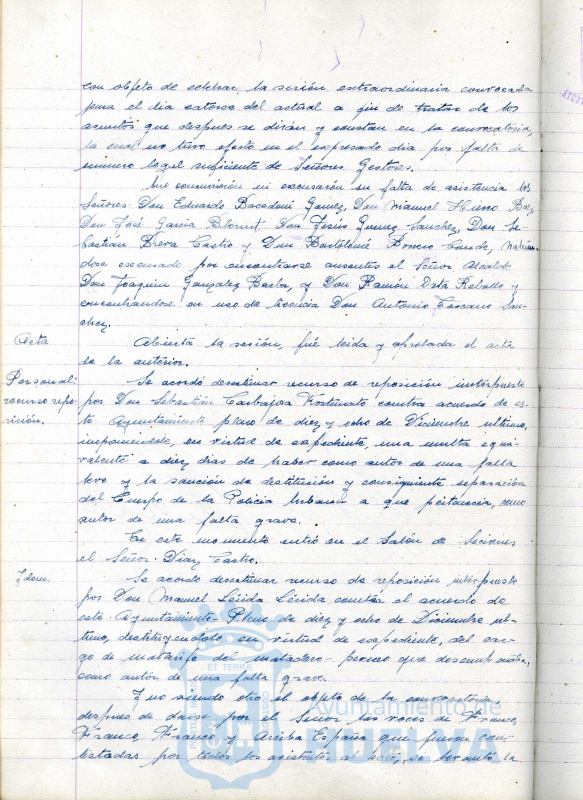 con objeto de celebrar la sesión extraordinaria convocada
para el dia catorce del actual a fin de tratar de los
asuntos que despues se dirán y constan en la convocatoria,
la cual no tuvo efecto en el expresado dia por falta de
número legal suficiente de Señores Gestores.
No concurrieron ni excusaron su falta de asistencia los
Señores: Don Eduardo Gomez, Don Manuel
Don José Garcia Don Jesús Sanchez, Don Se-
bastián Brera Castro y Don Bartolomé Romero habien-
dose excusado por encontrarse ausentes el Señor Alcalde
Don Joaquin Gonzalez Barba, y Don Ramón Rebollo y
encontrandose en uso de licencia Don Antonio San-
chez.
Acta
Abierta la sesión, fué leida y aprobada el acta
de la anterior.
Personal: recurso repo-
sición.
Se acordó desestimar recurso de reposición interpuesto
por Don Sebastián Carbajosa Fortunato contra acuerdo de es-
te Ayuntamiento pleno de diez y ocho de Diciembre ultimo,
imponiendole, en virtud de expediente, una multa equi-
valente a diez dias de haber como autor de una falta
leve y la sanción de destitución y consiguiente separación
del Cuerpo de la Policia Urbana a que pertenecia, como
autor de una falta grave.
En este momento entró en el Salón de Sesiones
el Señor Diaz Castro.
Idem.
Se acordó desestimar recurso de reposición interpuesto
por Don Manuel Lérida Lérida contra el acuerdo de
este Ayuntamiento-Pleno de diez y ocho de Diciembre ul-
timo, destituyendole en virtud de expediente, del car-
go de matarife del matadero que desempeñaba,
como autor de una falta grave.
Y no siendo otro el objeto de la convocatoria
despues de darse por el Señor las voces de Franco,
Franco, Franco y Arriba España que fueron con-
testadas por todos los asistentes al acto, se levantó la
Ayuntamiento de
HUELVA